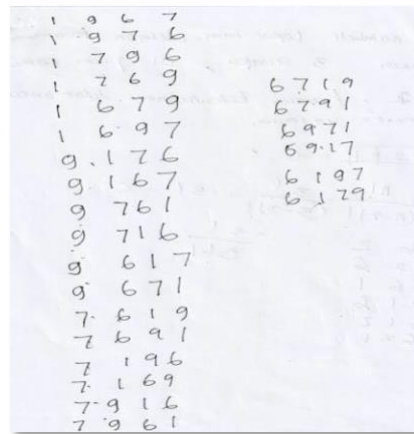 1 9 6 7
1 9 7 6
1 7 9 6
1 7 6 9
1 6 7 9
1 6 9 7
9 1 7 6
9 1 6 7
9 7 6 1
9 7 1 6
9 6 1 7
9 6 7 1
7 6 1 9
7 6 9 1
7 1 9 6
7 1 6 9
7 9 1 6
7 9 6 1
6 7 1 9
6 7 9 1
6 9 7 1
6 9 1 7
6 1 9 7
6 1 7 9